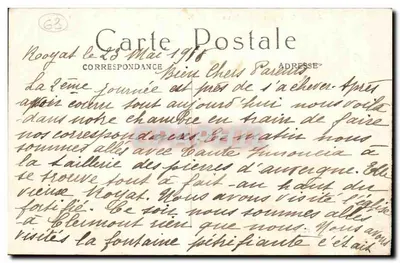 Carte Postale
Royat le 23 Mai 1918
CORRESPONDANCE
ADRESSE
Bien Chers Parents
La 2ème journée est près de s'achever. Après
avoir couru tout aujourd'hui nous voilà
dans notre chambre en train de faire
nos correspondances. Ce matin nous
sommes allés avec Tante
la taillerie des pierres d'auvergne. Elle
se trouve tout à fait au haut du
vieux Royat. Nous avons visité l'église
fortifiée. Ce soir nous sommes allés
à Clermont rien que nous. Nous avons
visités la fontaine pétrifiante c'était